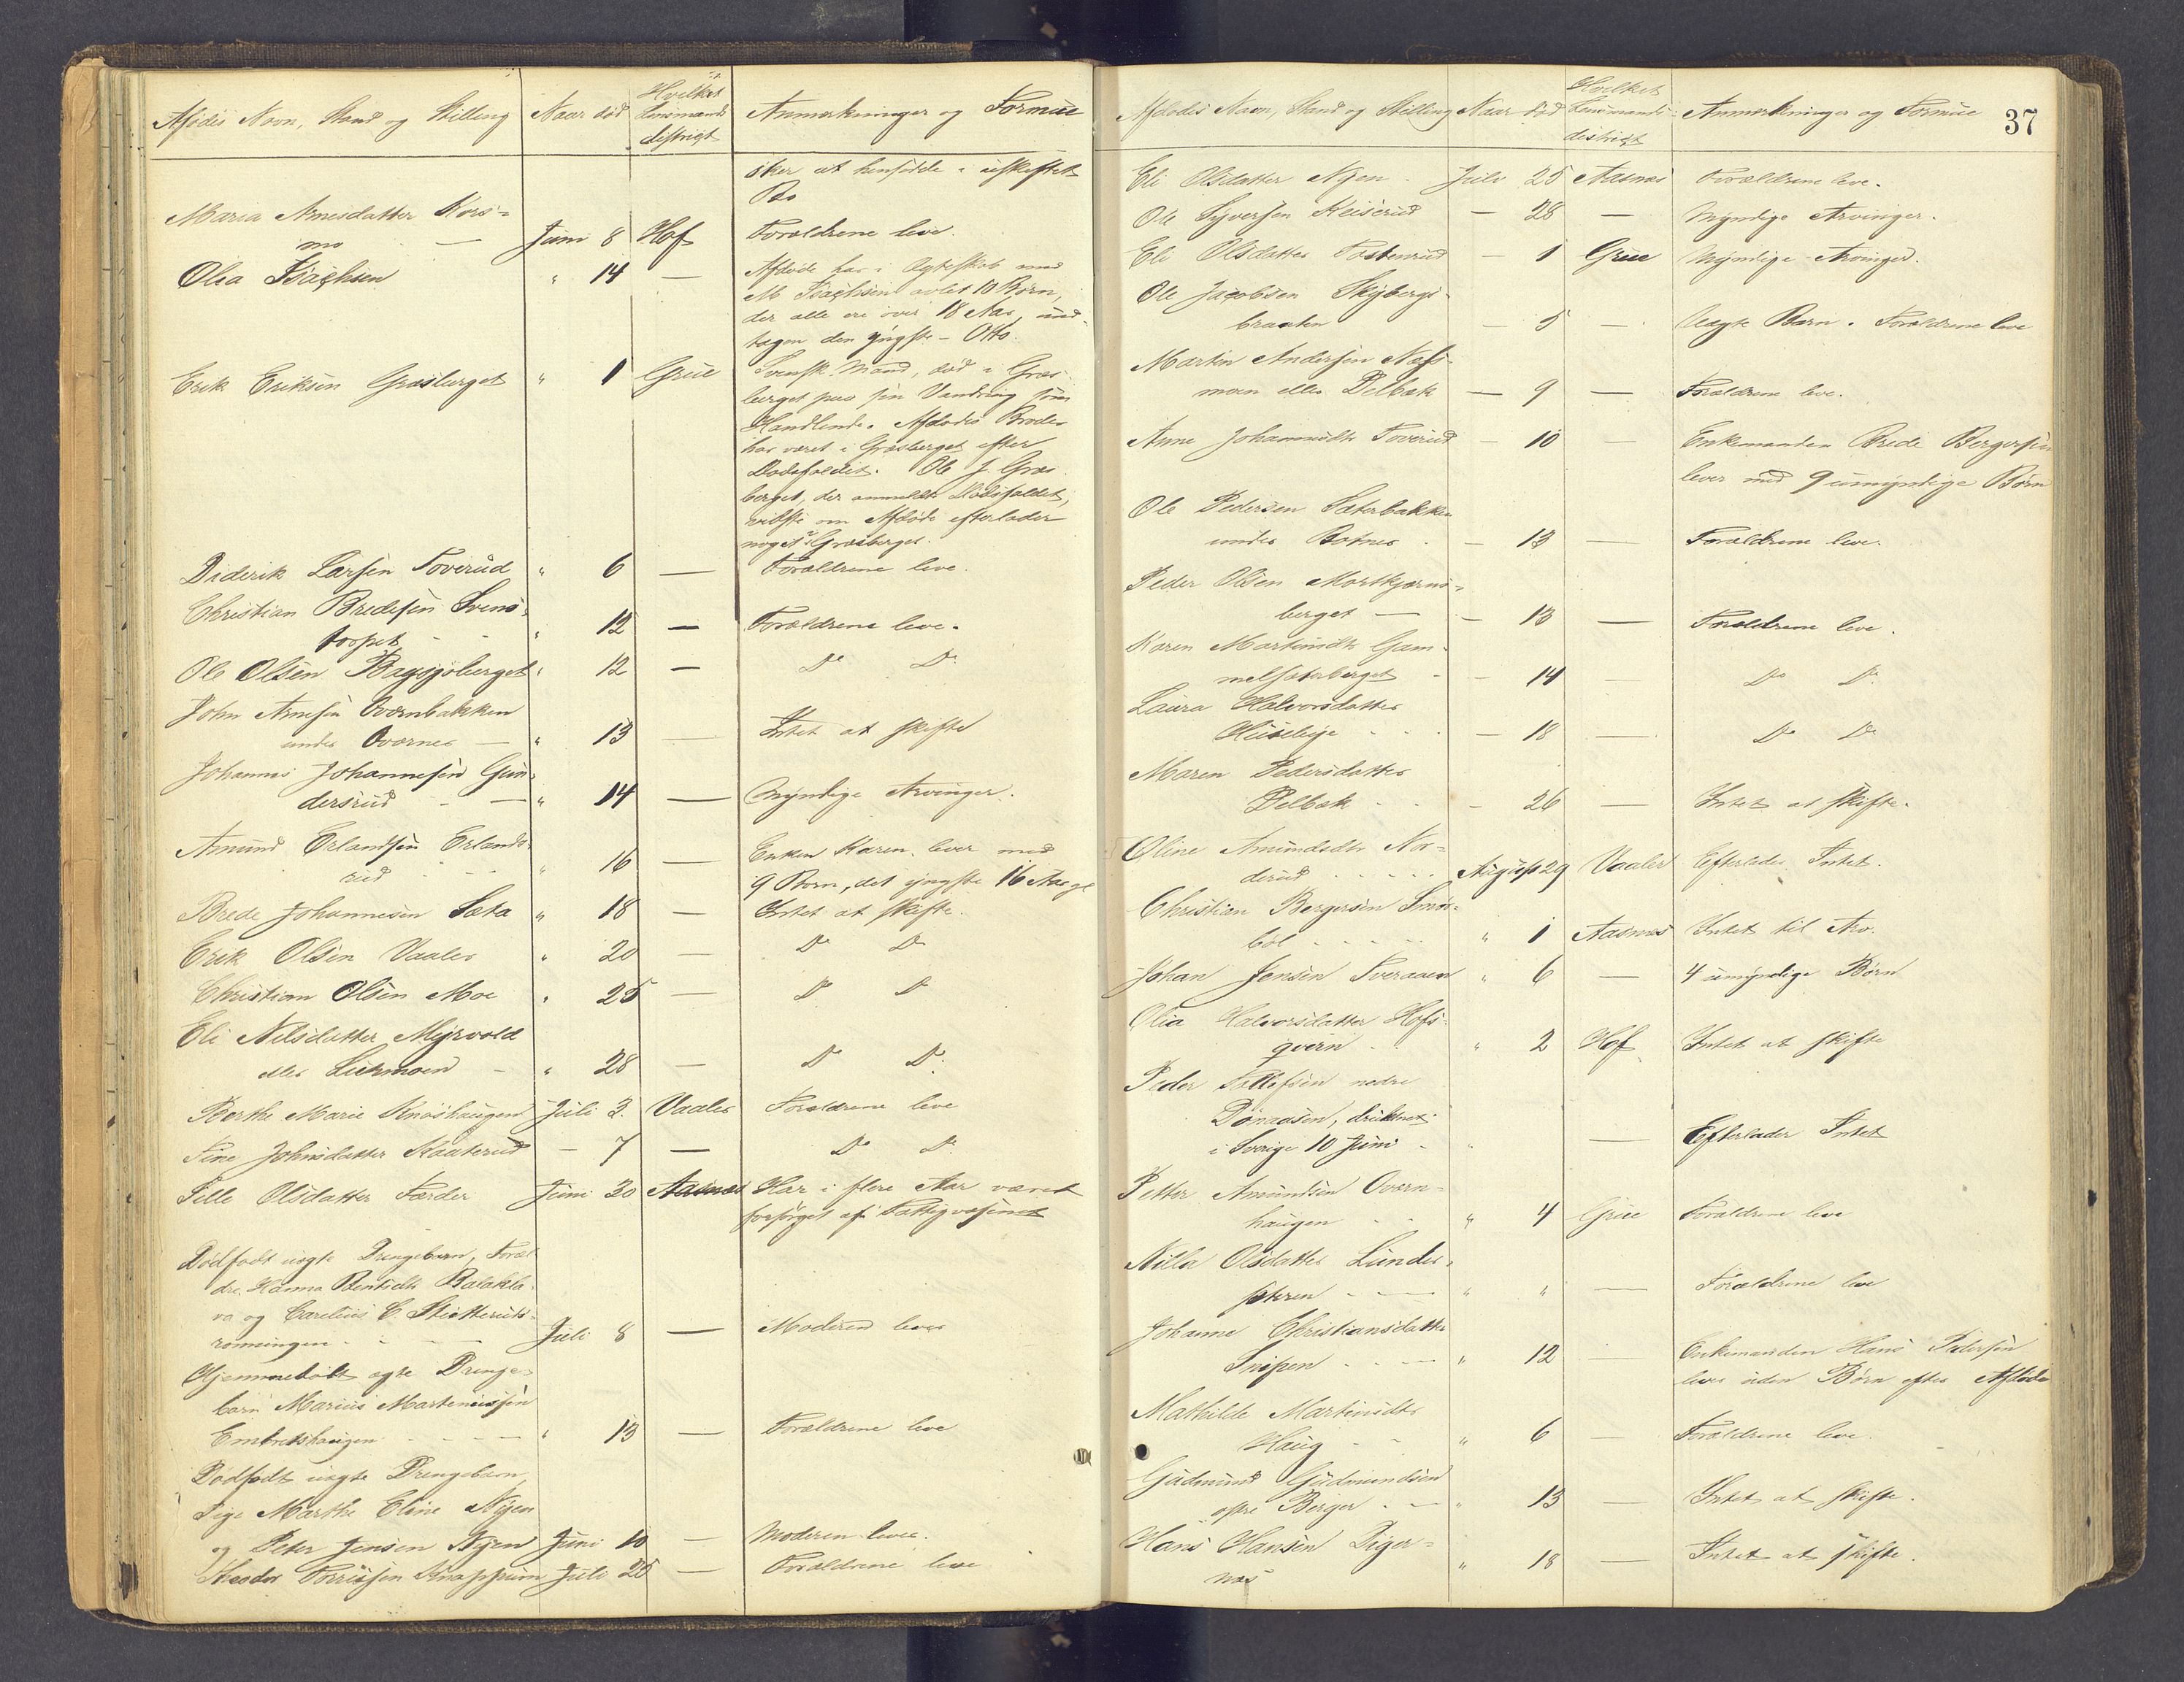 Afdødes Navn, Stand og Stilling Naar død Hvilket Lensmands distrigt Anmærkninger og Formue
øker at hensidde i uskiftet
Bo
Maria Arnesdatter Kors=
mo — Juni 8 Hof Forældrene leve.
Olea Isachsen " 14 — Afdøde har i Ægteskab med
M Isachsen avlet 10 Børn,
der alle ere over 18 Aar, und-
tagen den yngste - Otto.
Erik Eriksen Græsberget " 1 Grue Svensk Mand, død i Græs
berget paa sin Vandring som
Handlende. Afdødes Broder
har været i Græsberget efter
Dødsfaldet. Ole J. Græs
berget, der anmeldte Dødsfaldet,
vidste om Afdøde efterlader
noget i Græsberget.
Diderik Larsen Toverud " 6 — Forældrene leve.
Christian Bredesen Svens-
torpet " 12 — Forældrene leve.
Ole Olsen Bagsjøberget " 12 — Do Do
John Arnesen Oværnbakken
under Oværnes — " 13 — Intet at skifte
Johannes Johannesen Gun-
dersrud — " 14 — Myndige Arvinger.
Amund Erlandsen Erlands-
rud " 16 — Enken Karen lever med
9 Børn, det yngste 16 Aar gl
Brede Johannesen Sæta " 18 — Intet at skifte.
Erik Olsen Vaaler " 20 — Do Do
Christian Olsen Moe " 25 — Do Do
Eli Nilsdatter Myrvold
eller Liermoen " 28 — Do Do
Berthe Marie Knøshaugen Juli 3. Vaaler Forældrene leve
Tine Johnsdatter Skaaterud — 7 — Do Do
Pelle Olsdatter Førder Juni 20 Aasnæs Har i flere Aar været
forsørget af Fattigvæsenet
Dødfødt uægte Drengebarn, Foræl
dre. Hanna Bentsdtr Balakla-
va og Carelius C. Skotteruds-
rønningen Juli 8 — Moderen lever
Hjemmedøbt ægte Drenge-
barn Marius Martiniussen
Embretshaugen " 13 — Forældrene leve
Dødfødt uægte Drengebarn,
Pige Marthe Eline Nyen
og Peter Jensen Nyen Juni 10 — Moderen lever.
Theodor Torrissen Knappum Juli 25 — Forældrene leve
Afdødes Navn, Stand og Stilling Naar død Hvilket Lensmands distrigt Anmærkninger og Formue 37
Eli Olsdatter Nyen Juli 25 Aasnæs Forældrene leve.
Ole Syversen Keiserud — 28 — Myndige Arvinger.
Eli Olsdatter Tostenrud — 1 Grue Myndige Arvinger.
Ole Jacobsen Skybergs-
braaten — 5 — Uægte Barn. Forældrene leve
Martin Andersen Næss-
moen eller Delbæk — 9 — Forældrene leve.
Anne Johannesdtr Toverud — 10 — Enkemanden Brede Bergersen
lever med 9 umyndige Børn
Ole Pedersen Sæterbakken
under Botner — 13 — Forældrene leve.
Peder Olsen Mortkjærns-
berget — — 13 — Forældrene leve.
Karen Martinsdtr Gam-
melsæterberget — 14 — Do Do
Laura Halvorsdatter
Huseleje — 18 — Do Do
Maren Pedersdatter
Delbæk — 26 — Intet at skifte.
Oline Amundsdtr Nor=
derud August 29 Vaaler Efterlader Intet.
Christian Bergersen Smør=
bøl " 1 Aasnæs Intet til Arv.
Johan Jensen Sveraaen " 6 — 4 umyndige Børn
Olia Halvorsdatter Hofs-
qvern " 2 Hof Intet at skifte
Peder Tollefsen nedre
Dønaasen, druknet
i Sverige 10 Juni " — Efterlader Intet
Petter Amundsen Oværn-
haugen " 4 Grue Forældrene leve
Nilla Olsdatter Lunder-
sæteren " " — Forældrene leve
Johanne Christiansdatter
Snipen " 12 — Enkemanden Hans Pedersen
lever uden Børn efter Afdøde
Mathilde Martinsdtr
Haug " 6 — Forældrene leve.
Gudmund Gudmundsen
østre Berger " 13 — Intet at skifte.
Hans Hansen Diger=
næs " 18 — Intet at skifte.